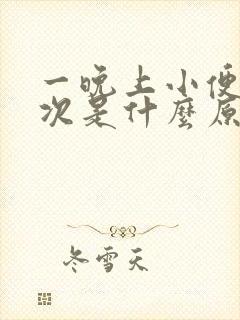 一晚上小便
次是什麼原
冬雪天